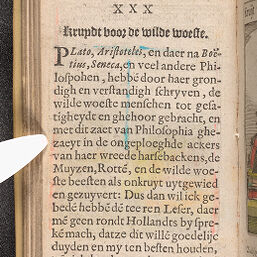 XXX
kruydt voor de wilde woeste.
Plato, Aristoteles, en daer na Boë-
tius, Seneca, en veel andere Phi-
losophen, hebbē door haer gron-
digh en verstandigh schryven, de
wilde woeste menschen tot gesa-
tigheydt en ghehoor gebracht, en
met dit zaet van Philosophia ghe-
zaeyt in de ongeploeghde ackers
van haer wreede harsebackens, de
Muyzen, Rottē, en de wilde woe-
ste beesten als onkruyt uytgewied
en gezuyvert: Dus dan wil ick ge-
bedē hebbē de teeren Leser, daer
mē geen rondt Hollandts by spre-
kē mach, datze dit willē goedelijc
duyden en my ten besten houden,